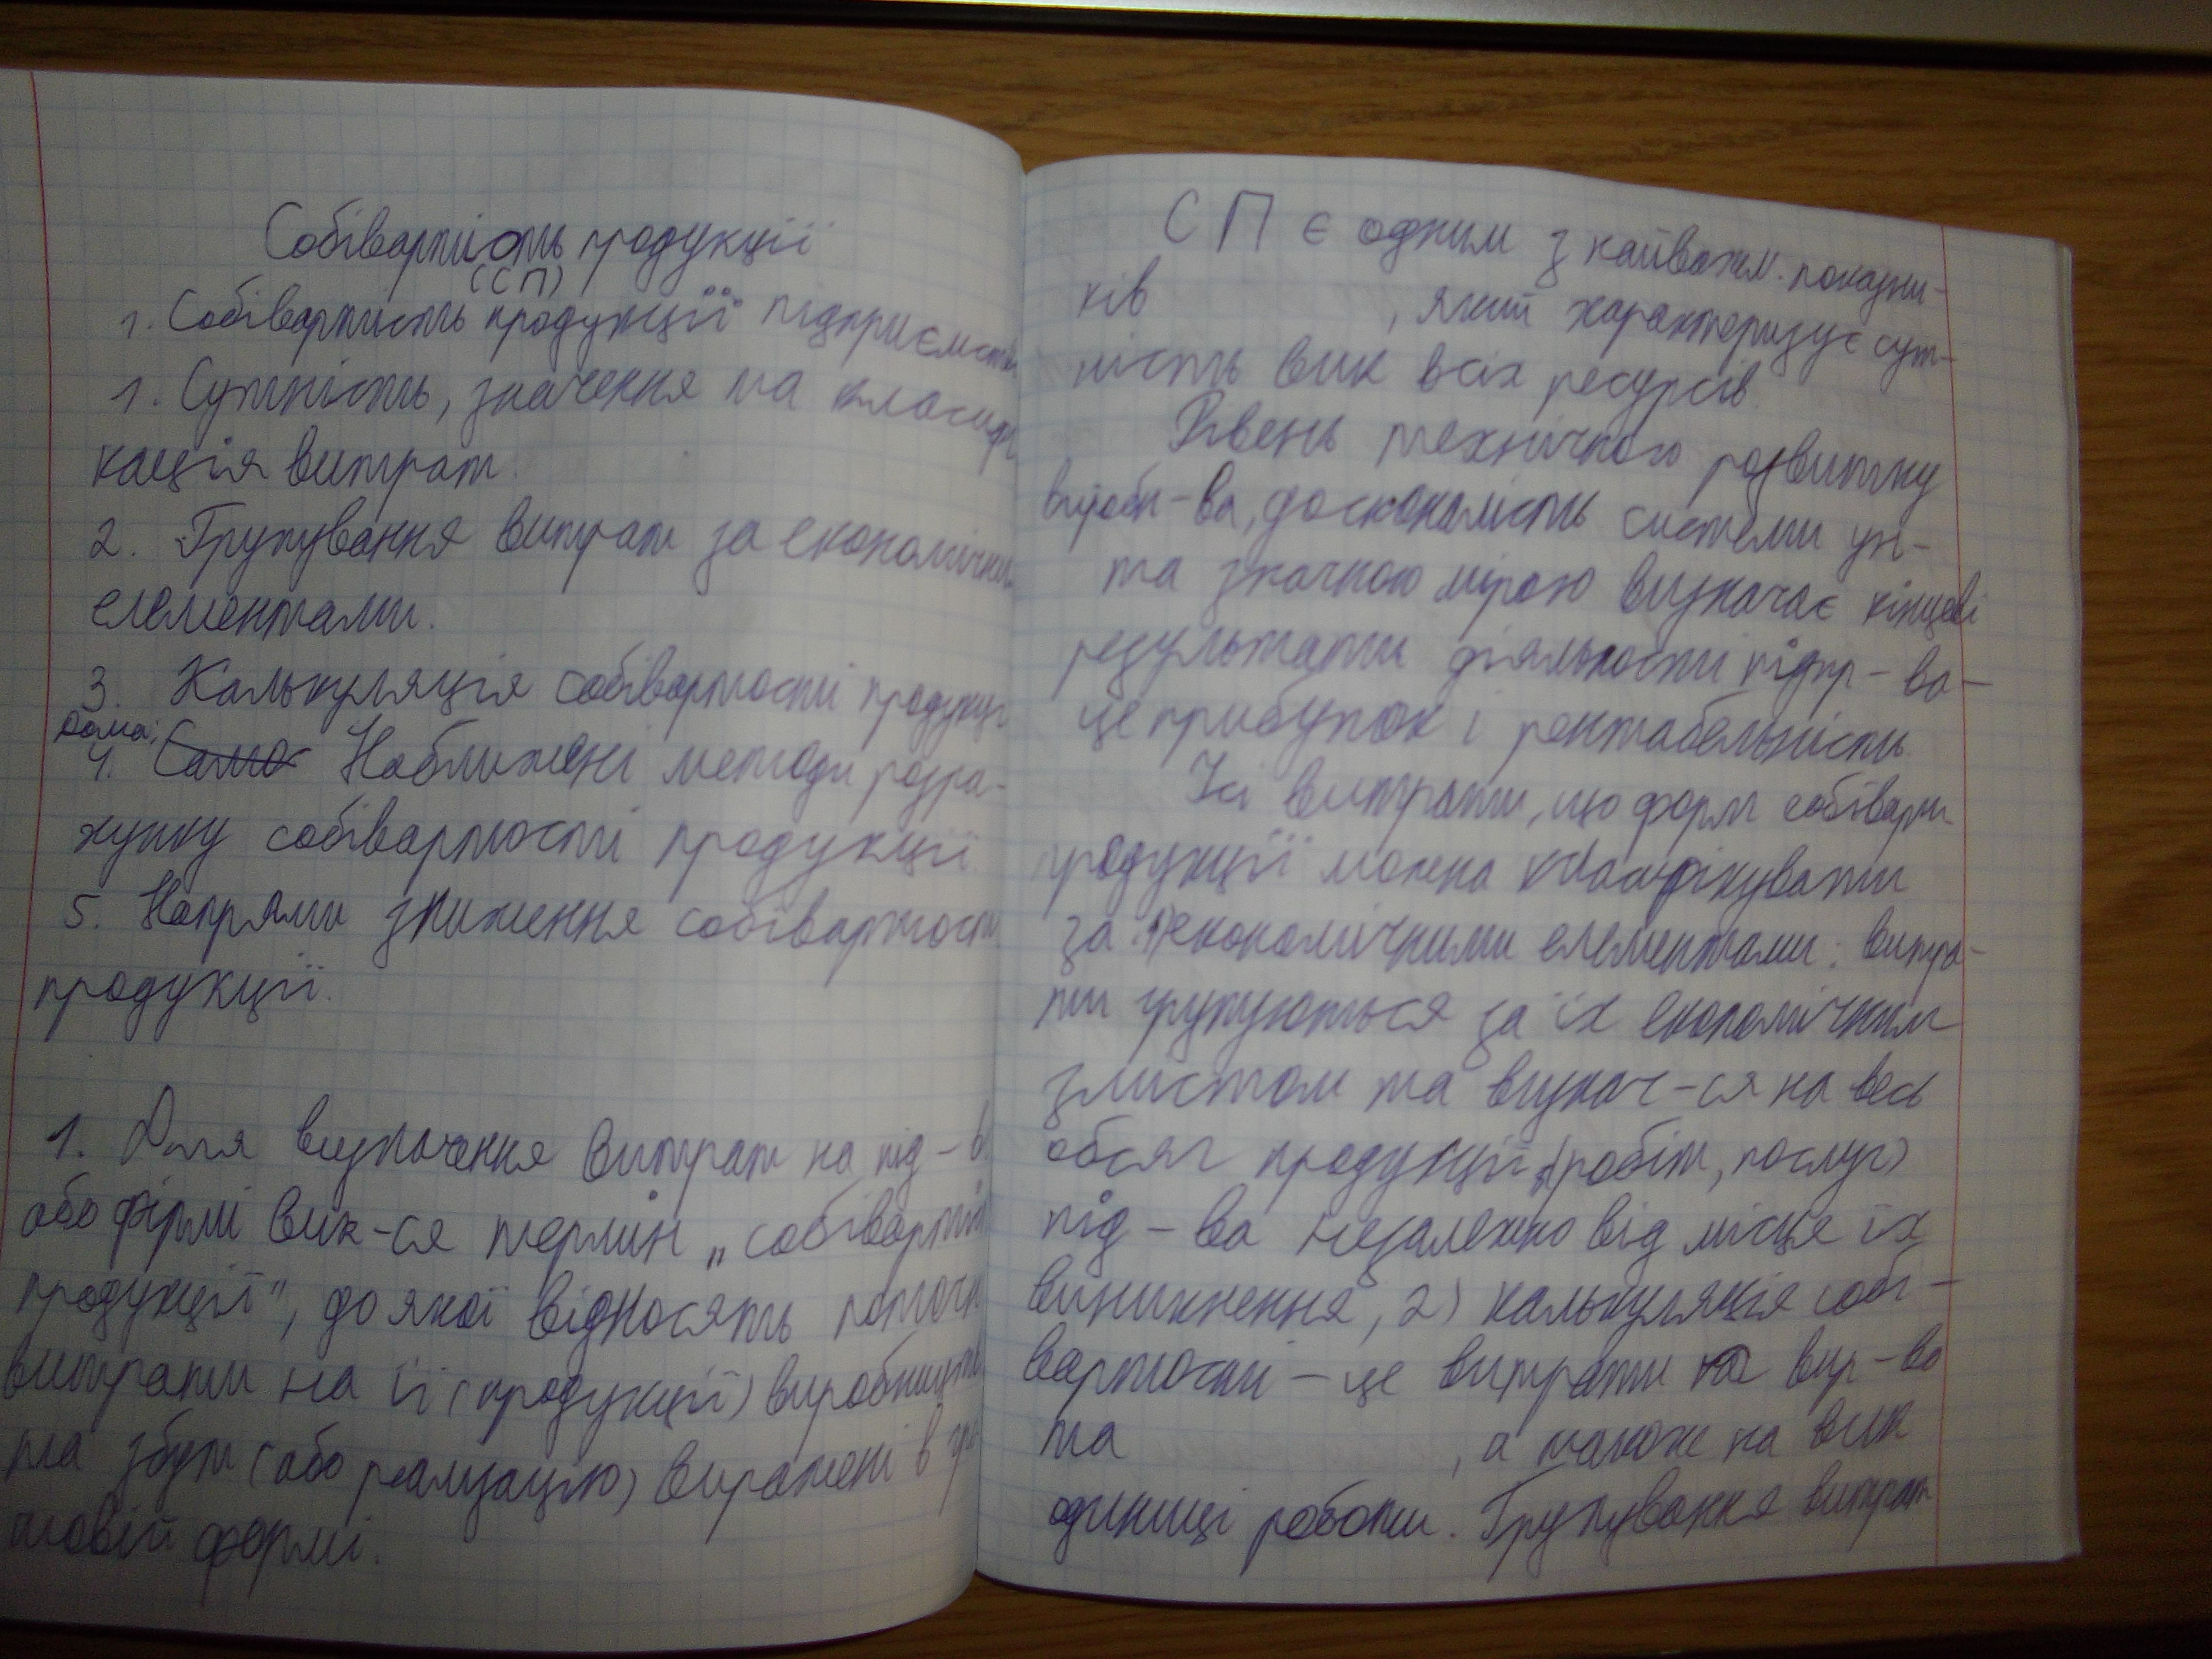 Собівартість продукції
(СП)
1. Собівартість продукції підприємства
1. Сутність, значення та класифі
кація витрат.
2. Групування витрат за економічни
елементами.
3. Калькуляція собівартості продукції
дома:
4. Само Наближені методи розра-
хунку собівартості продукції
5. Напрями зниження собівартості
продукції.
1. Для визначення витрат на під-ві
або фірмі вик-ся термін „собівартість
продукції", до якої відносять поточні
витрати на її (продукції) виробництво
та збут (або реалізацію) виражені в гро
шовій формі.
СП є одним з найважл. показни-
ків , який характеризує сут-
ність вик всіх ресурсів.
Рівень технічного розвитку
вироби-ва, досконалість системи уп-
та значною мірою визначає кінцеві
результати діяльності підпр-ва-
це прибуток і рентабельність.
Усі витрати, що форм собіварт
продукції можна класифікувати
за: 1) економічними елементами: витра-
ти групуються за їх економічним
змістом та визнач-ся на весь
обсяг продукції (робіт, послуг)
під-ва незалежно від місця їх
виникнення, 2) калькуляція собі-
вартості - це витрати на вир-во
та , а також на вик
одиниці роботи. Групування витрат